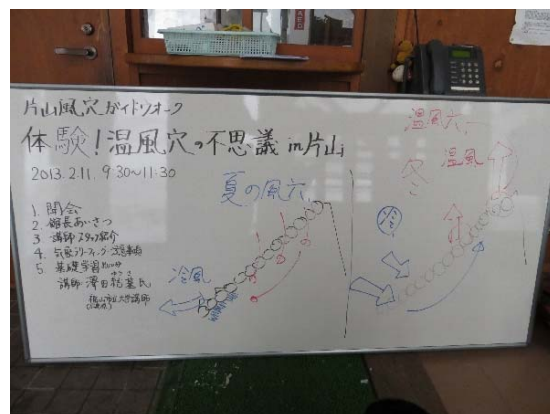 片山風穴ガイドウォーク
体験！温風穴の不思議in片山
2013.2.11. 9:30~11:30
1. 開会
2. 館長あいさつ
3 講師・スタッフ紹介
4.
5 基礎学習
講師・澤田結基氏
福山市立大学講師
夏の風穴
冷風
温風穴
冬
温風
冷